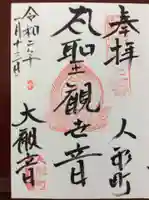 奉拝
人形町
聖観世音
大観音
令和二年
一月十三日